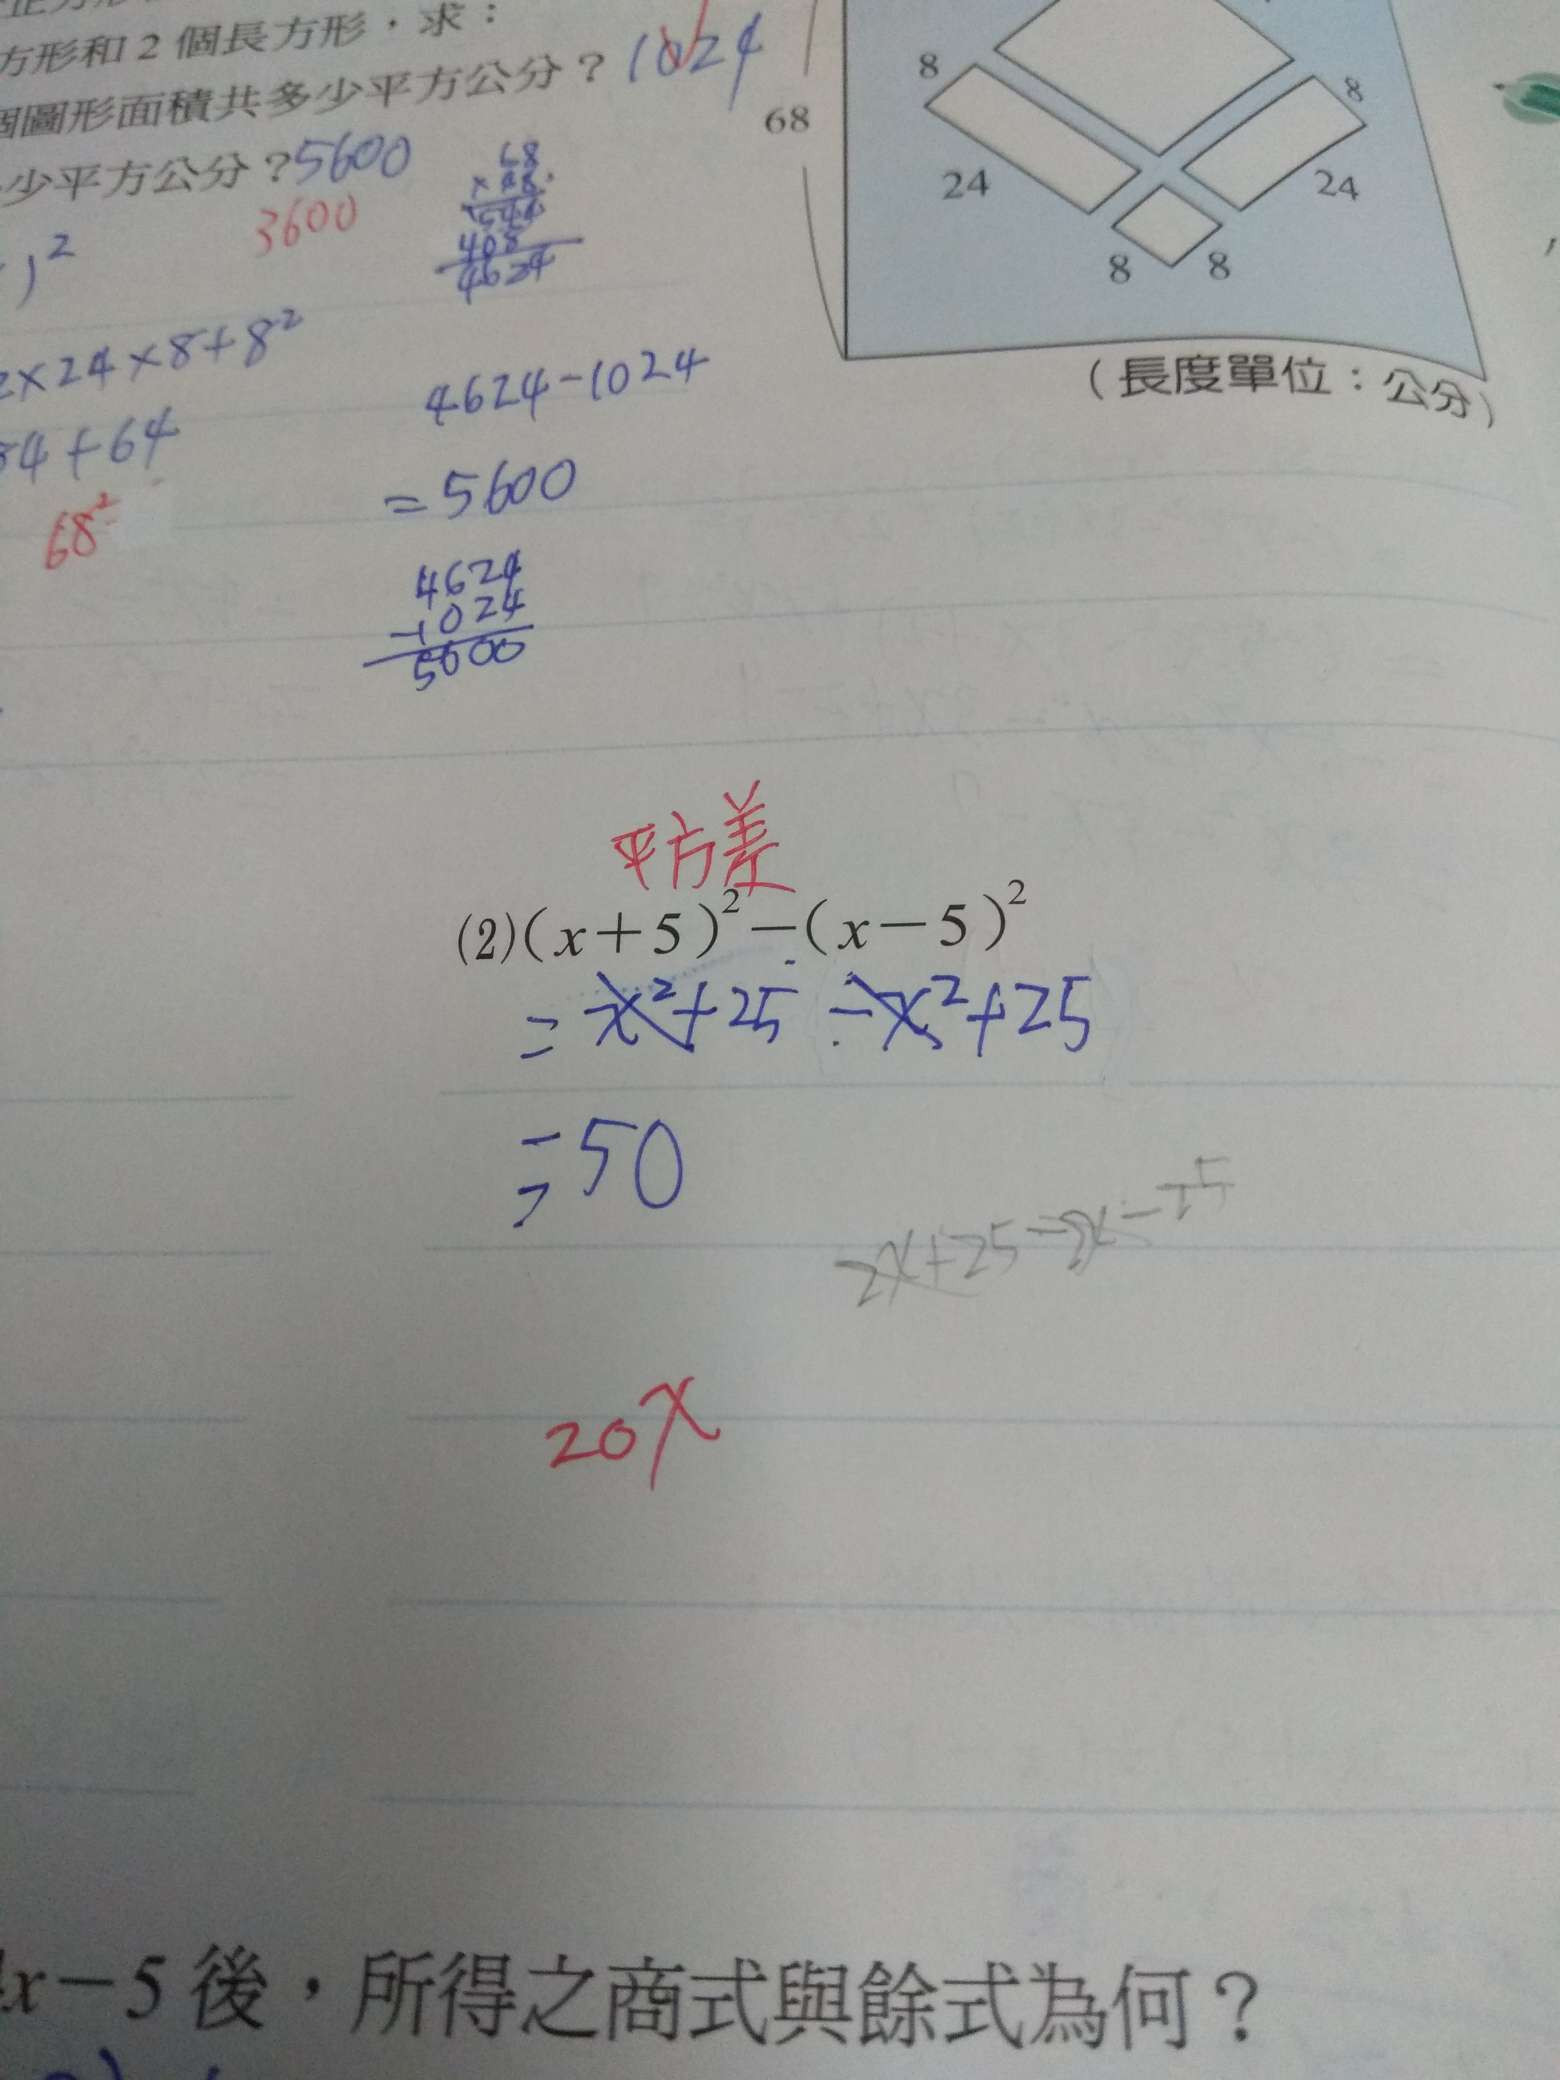 方形和2個長方形，求：
個圖形面積共多少平方公分？1024
少平方公分？5600
3600
)²
2×24×8+8²
4+64
68²
68
544
408
4624
4624-1024
=5600
4624
-1024
5600
68
8
24
8
24
8
8
（長度單位：公分）
平方差
(2)(x+5)²-(x-5)²
=x²+25-x²+25
=50
2x+25-2x-
20x
x-5後，所得之商式與餘式為何？